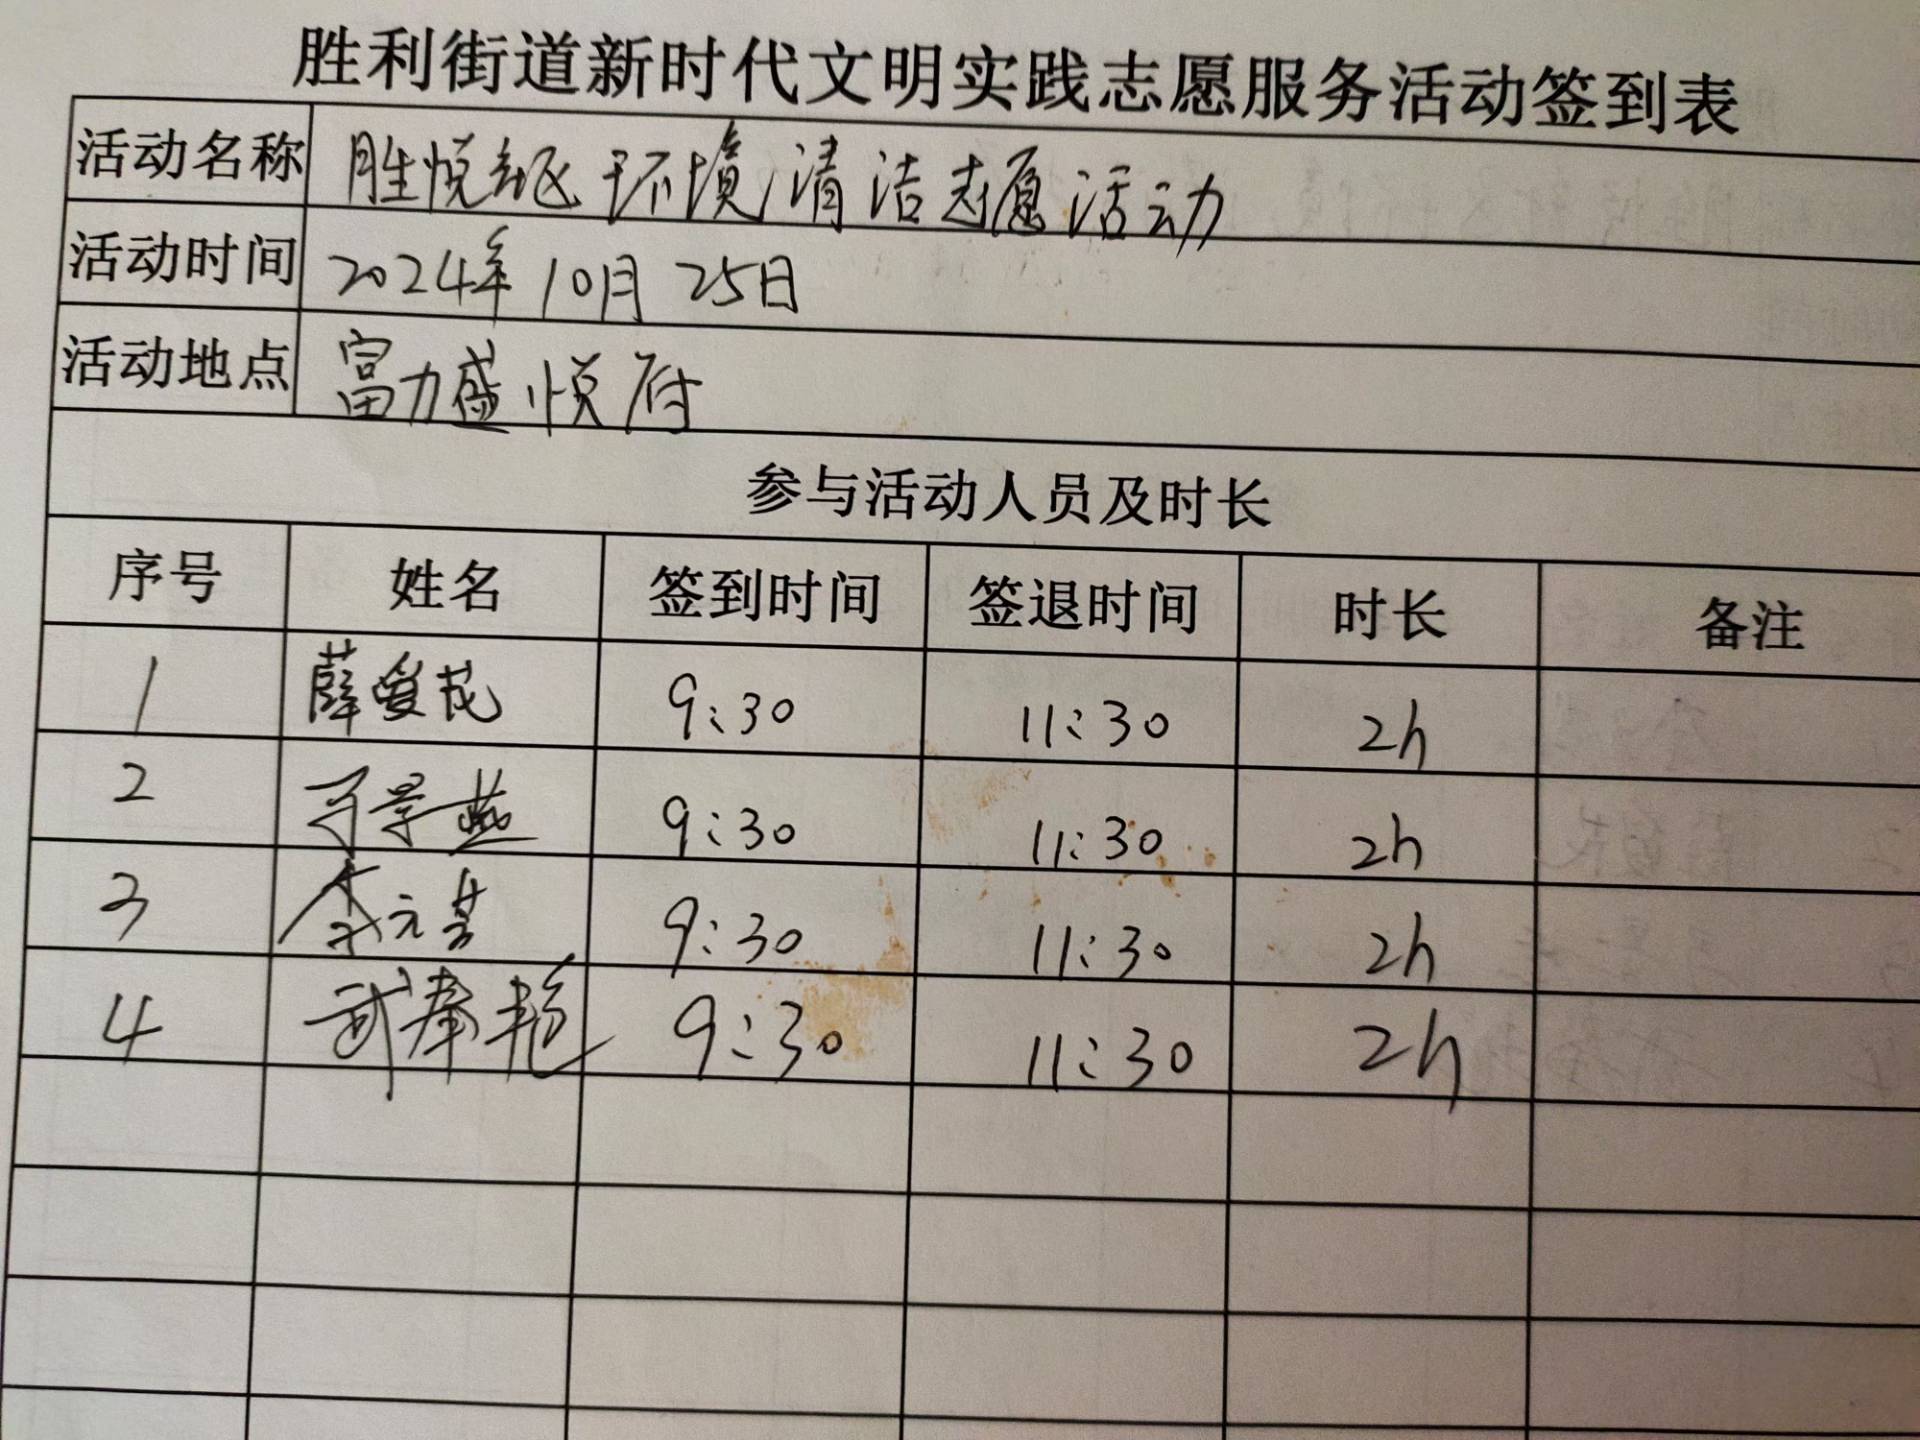 胜利街道新时代文明实践志愿服务活动签到表
活动名称 胜悦社区环境清洁志愿活动
活动时间 2024年10月25日
活动地点 富力盛悦府
参与活动人员及时长
序号 姓名 签到时间 签退时间 时长 备注
1 薛爱茂 9:30 11:30 2h
2 弓景燕 9:30 11:30 2h
3 李元芳 9:30 11:30 2h
4 武春艳 9:30 11:30 2h